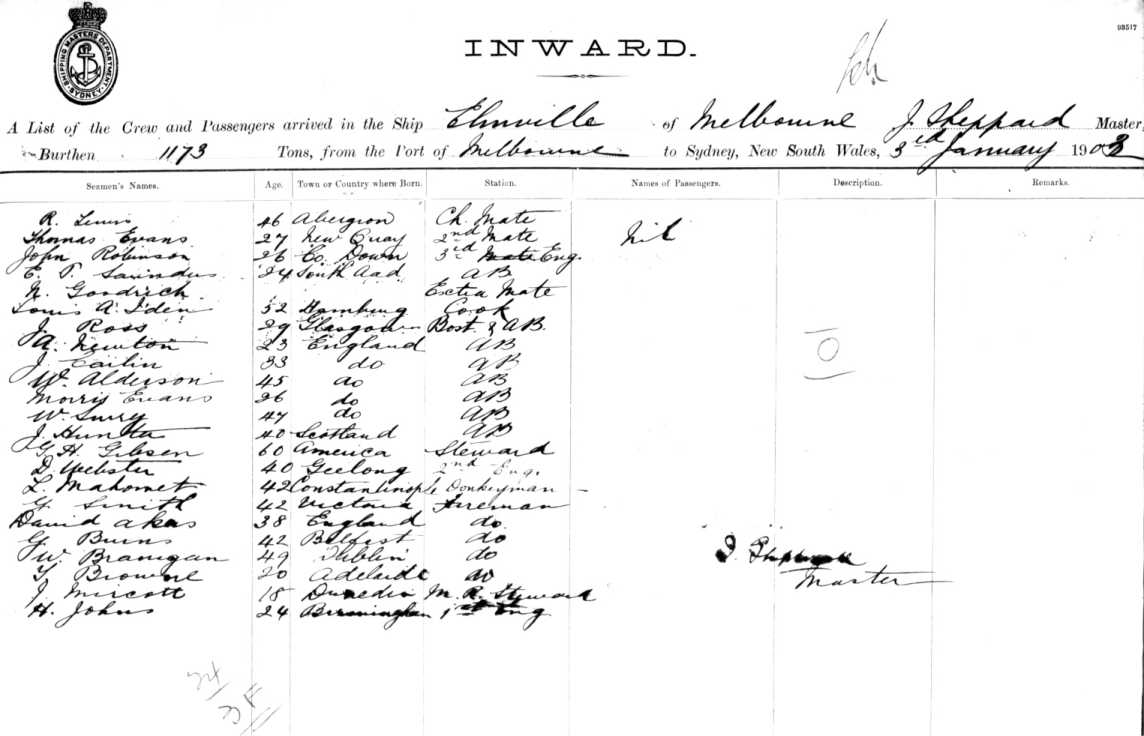 SHIPPING MASTERS DEPARTMENT
SYDNEY
93517
INWARD.
A List of the Crew and Passengers arrived in the Ship Elmville of Melbourne J. Sheppard Master,
Burthen 1173 Tons, from the Port of Melbourne to Sydney, New South Wales, 3rd January 1903
Seamen's Names. Age. Town or Country where Born. Station. Names of Passengers. Description. Remarks.
R. Lewis 46 Ch. Mate
Thomas Evans 27 New Quay 2nd Mate Nil
John Robinson 26 Co. Down 3rd Mate Eng.
E. P. Saunders 24 South Aad AB
N. Goodrich Extra Mate
Louis A. Iden 52 Hamburg Cook
J. Ross 29 Glasgow Bost. & AB.
A. Newton 23 England AB
J. 33 do AB
W. Alderson 45 do AB
Morris Evans 26 do AB
W. Surry 47 do AB
J. Hunter 40 Scotland AB
G. H. Gibson 60 America Steward
D. Webster 40 Geelong 2nd Eng.
L. Mahomet 42 Constantinople Donkeyman
G. Smith 42 Victoria Fireman
David Akas 38 England do
G. Burns 42 Belfast do
W. Branigan 49 Dublin do
T. Browne 20 Adelaide do
J. 18 Dunedin M. R. Steward
H. Johns 24 Birmingham 1st Eng
J. Sheppard
Master